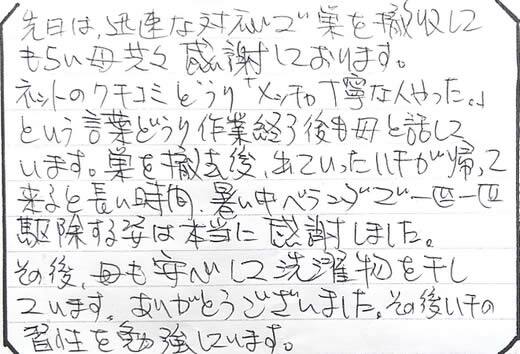 先日は、迅速な対応で巣を撤収して
もらい母共々感謝しております。
ネットのクチコミどうり「メッチャ丁寧な人やった。」
という言葉どうり作業終了後も母と話して
います。巣を撤去後、出ていったハチが帰って
来ると長い時間、暑い中ベランダで一匹一匹
駆除する姿は本当に感謝しました。
その後、母も安心して洗濯物を干し
ています。ありがとうございました。その後ハチの
習性を勉強しています。